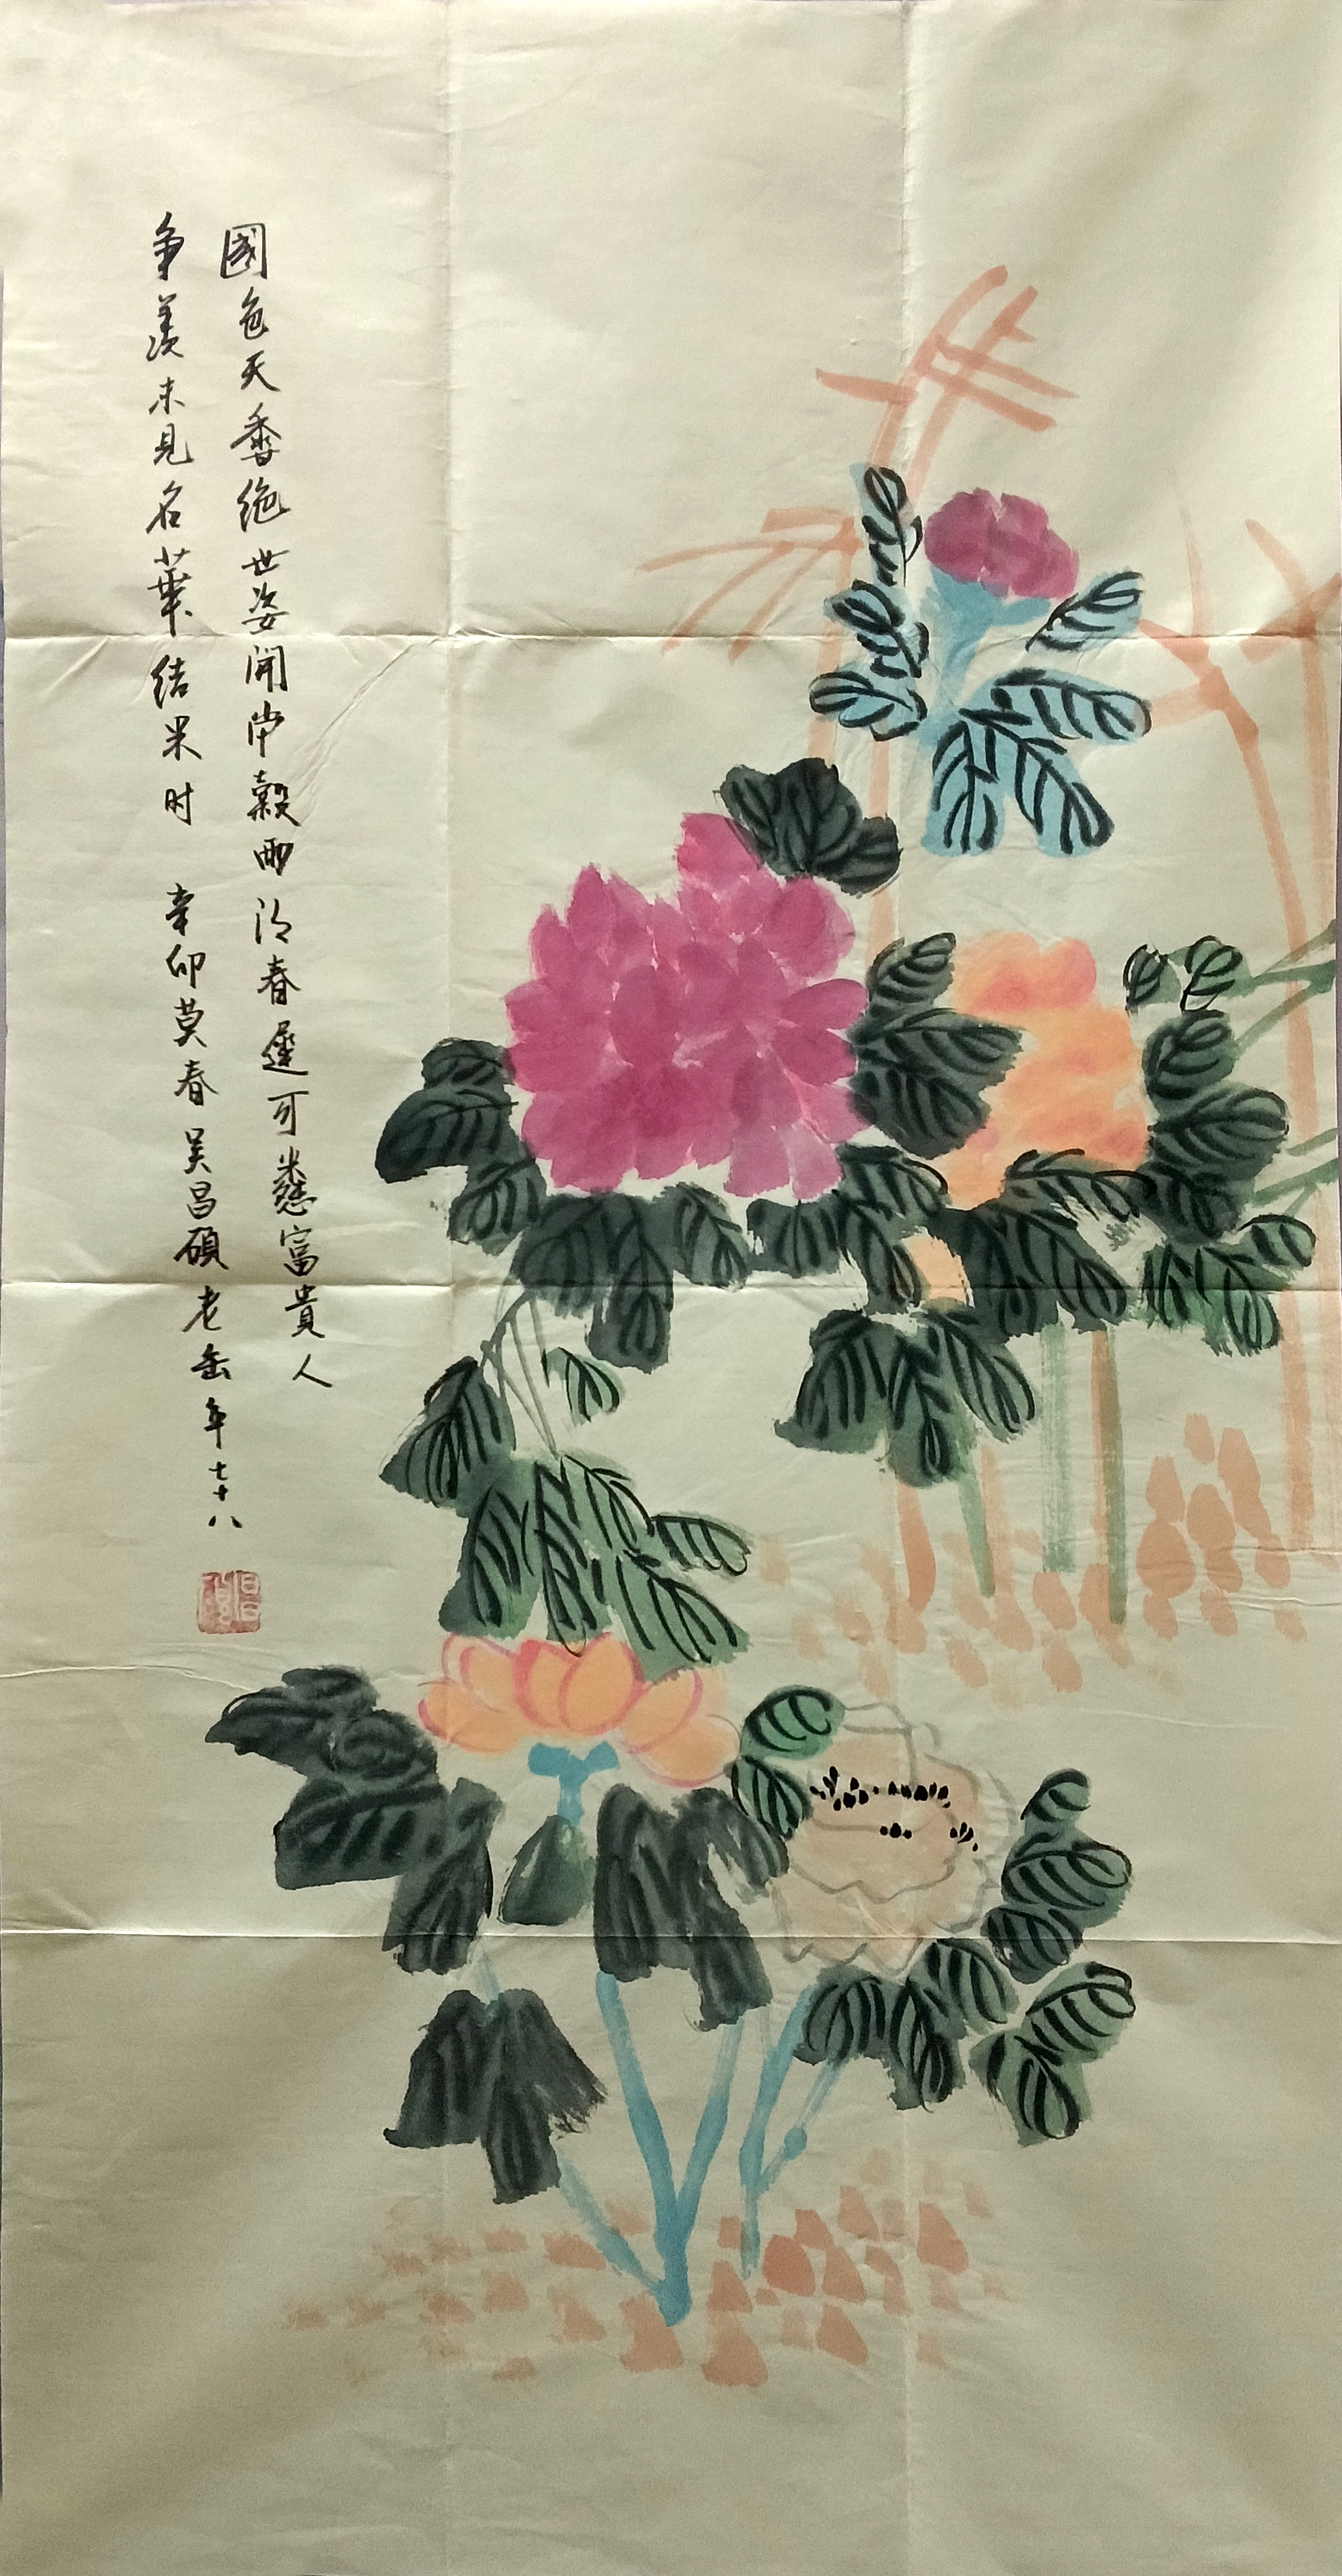 國色天香絶世姿開當穀雨得春遲可憐富貴人
争羡未見名華結果时 辛卯莫春吴昌碩老缶年七十八